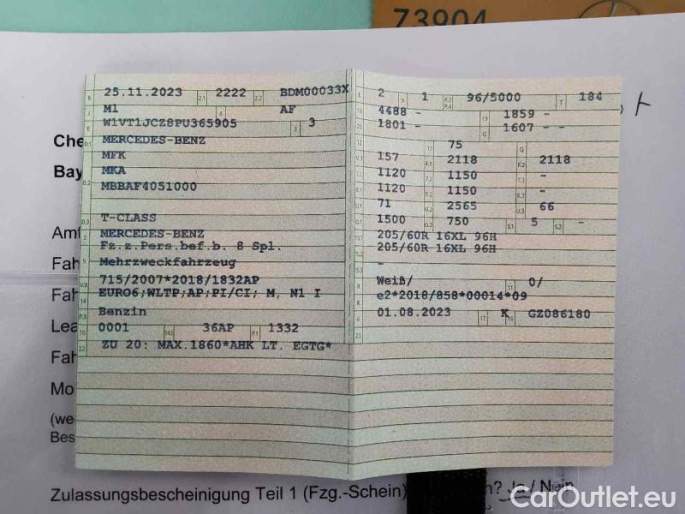 73904
25.11.2023 2222 BDM00033X
M1 AF
W1VT1JCZ8PU365905 3
MERCEDES-BENZ
MFK
MKA
MBBAF4051000
T-CLASS
MERCEDES-BENZ
Fz.z.Pers.bef.b. 8 Spl.
Mehrzweckfahrzeug
715/2007*2018/1832AP
EURO6;WLTP;AP;PI/CI; M, N1 I
Benzin
0001 36AP 1332
ZU 20: MAX.1860*AHK LT. EGTG*
2 1 96/5000 184
4488 - 1859 -
1801 - 1607 - -
75
157 2118 2118
1120 1150 -
1120 1150 -
71 2565 66
1500 750 5 -
205/60R 16XL 96H
205/60R 16XL 96H
-
Weiß/ 0/
e2*2018/858*00014*09
01.08.2023 K GZ086180
Che
Bay
Amt
Fah
Fah
Lea
Fah
Mo
(we
Bes
Zulassungsbescheinigung Teil 1 (Fzg.-Schein) n? Ja / Nein
CarOutlet.eu